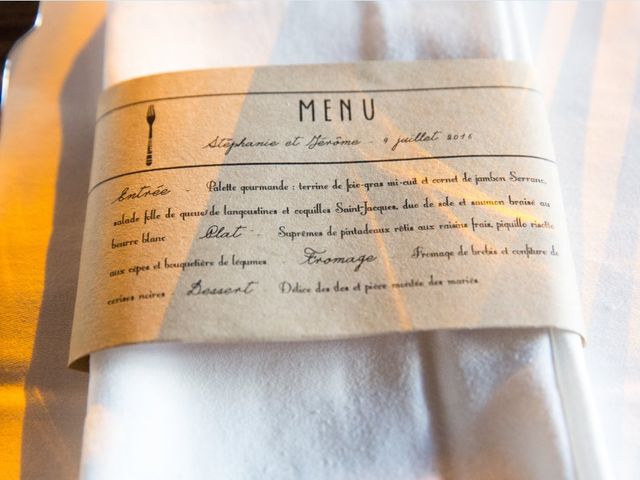 MENU
Stéphanie et Jérôme - 9 juillet 2016
Entrée - Palette gourmande : terrine de foie-gras mi-cuit et cornet de jambon Serrano,
salade folle de queue de langoustines et coquilles Saint-Jacques, duo de sole et saumon braisé au
beurre blanc Plat - Suprêmes de pintadeaux rôtis aux raisins frais, piquillo risotto
aux cèpes et bouquetière de légumes - Fromage Fromage de brebis et confiture de
cerises noires Dessert - Délice des et pièce montée des mariés